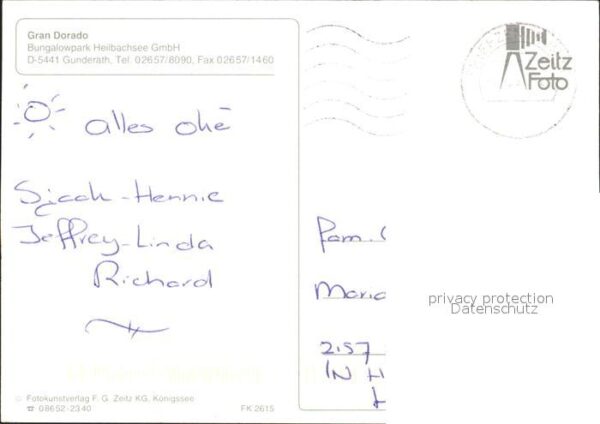 Gran Dorado
Bungalowpark Heilbachsee GmbH
D-5441 Gunderath, Tel. 02657/8090, Fax 02657/1460
alles oké
Sjack-Hennie
Jeffrey-Linda
Richard
© Fotokunstverlag F. G. Zeitz KG, Königssee
☎ 08652-2340
FK 2615
Zeitz
Foto
Fam.
Maria
2157
IN H
privacy protection
Datenschutz